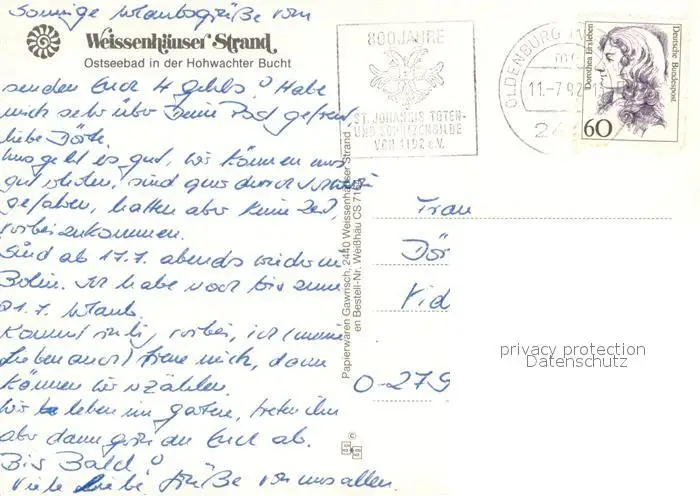 Sonnige Urlaubsgrüße vom
Weissenhäuser Strand
Ostseebad in der Hohwachter Bucht
senden Euch 4 Gehls! Habe
mich sehr über Deine Post gefreut,
liebe Dörte.
Uns geht es gut, wir können uns
gut erholen, sind ganz durch
gefahren, hatten aber keine Zeit,
vorbeizukommen.
Sind ab 17.7. abends wieder in
Berlin. Ich habe noch bis zum
31.7. Urlaub.
Kommt ruhig vorbei, ich (meine
Lieben auch) freue mich, dann
können wir erzählen.
Wir leben im Garten, treten ihn
aber dann gern an Euch ab.
Bis Bald!
Viele liebe Grüße von uns allen.
800 JAHRE
ST. JOHANNIS TOTEN-
UND SCHÜTZENGILDE
VON 1192 e.V.
OLDENBURG
11.-7.92
Dorothea Erxleben
Deutsche Bundespost
60
Papierwaren Gawrisch, 2440 Weissenhäuser Strand
en Bestell-Nr. Weißhäu CS 716
Frau
Dör
O-279
privacy protection
Datenschutz
©